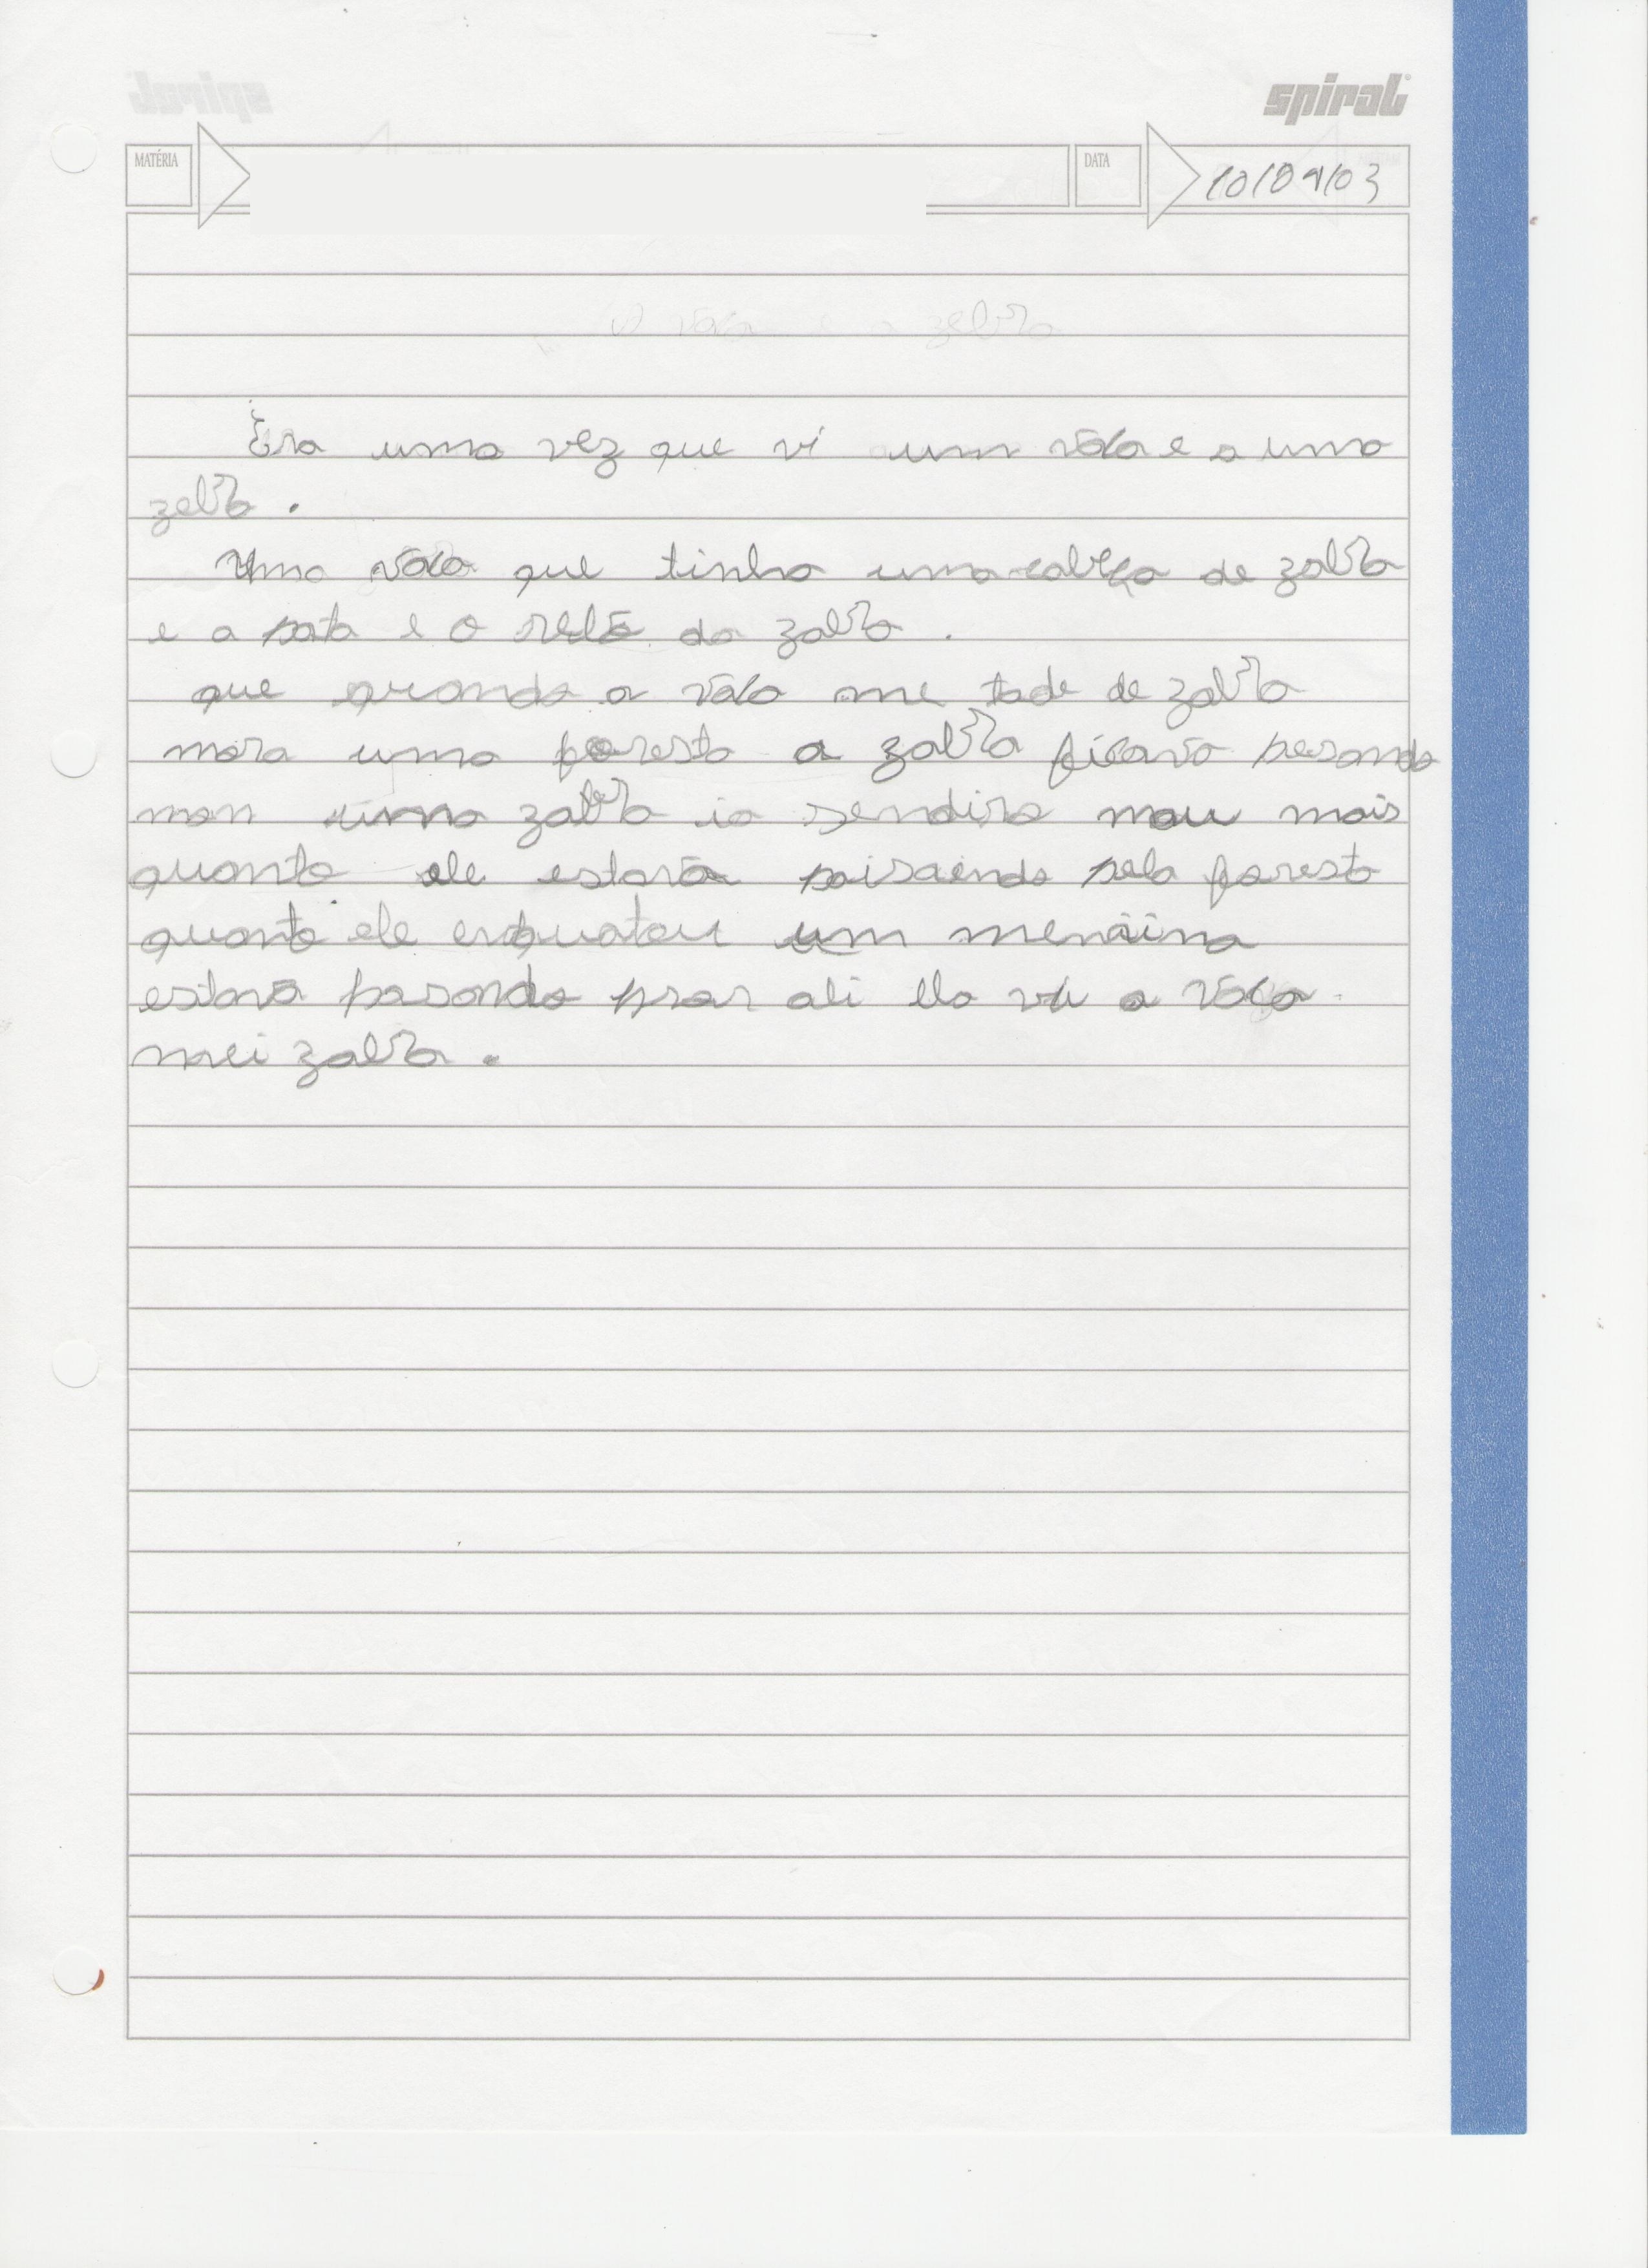 spiral
MATÉRIA DATA 10/09/03
A váca e a zebra
Éra uma vez que vi um váca e a uma
zebra.
Uma váca que tinha uma cabeça de zabra
e a pata e o relo da zabra.
que quando a váca me tade de zabra
mora uma foresta a zabra ficava pesando
man uma zabra ia sendira mau mais
quanto ele estava paisaendo pela foresta
quanto ele enquatou um menina
estava pasando prar ali ela viu a váca
mei zabra.